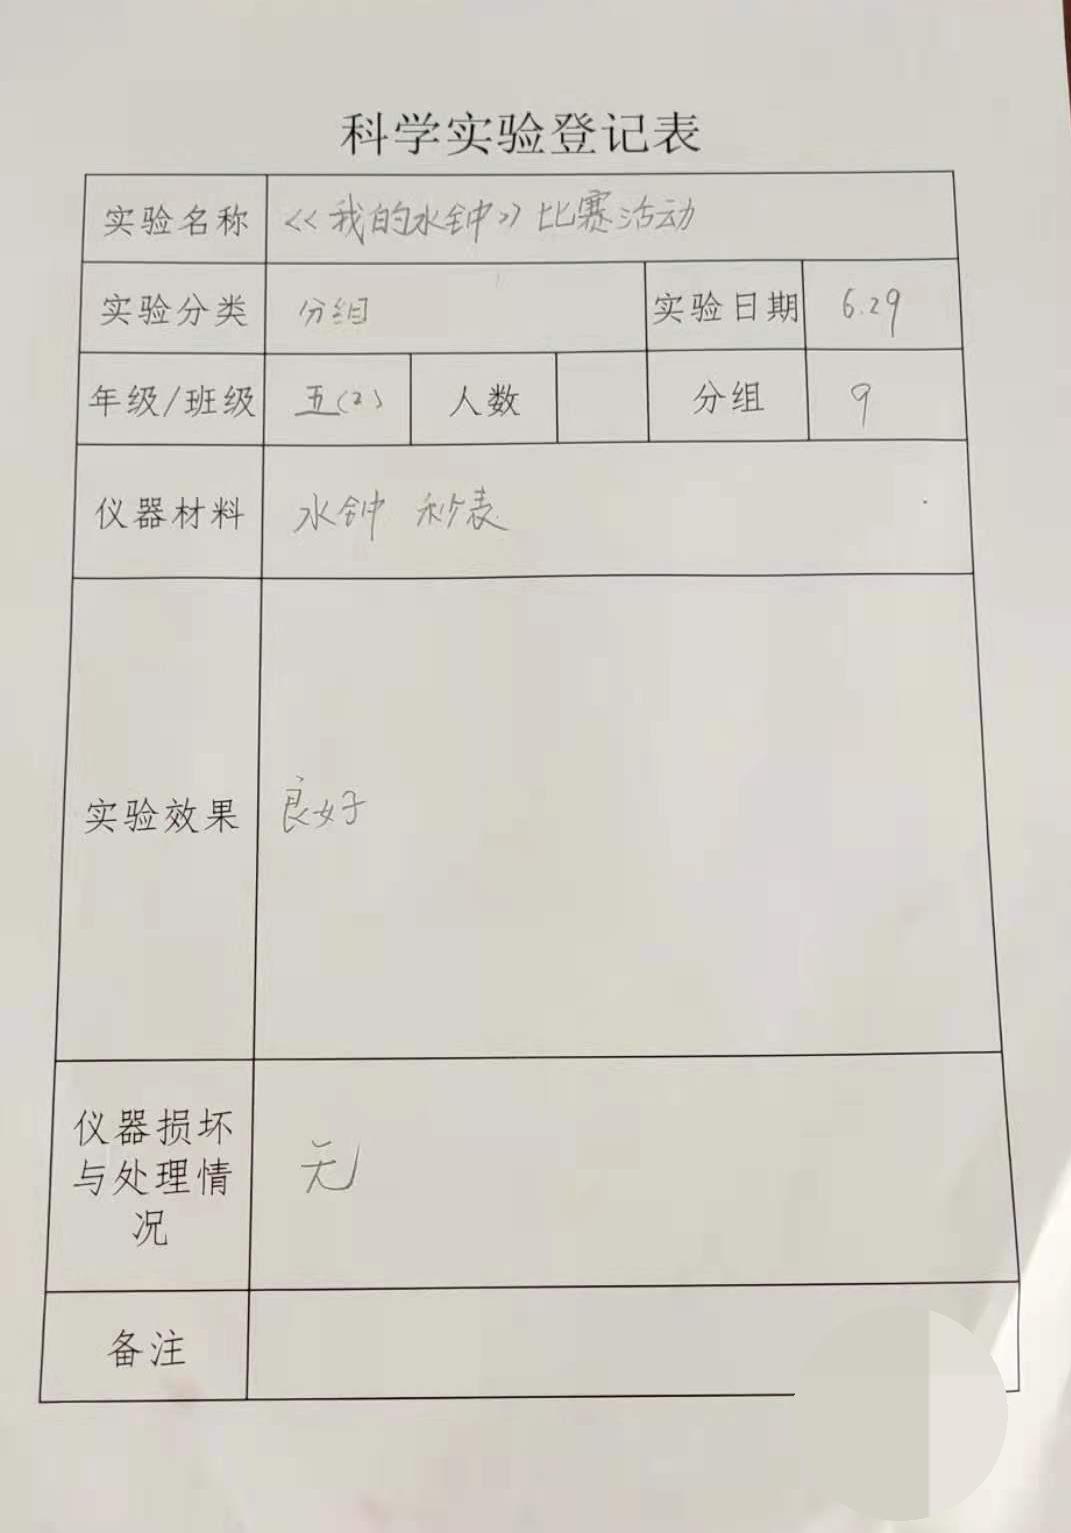 科学实验登记表
实验名称 <<我的水钟>>比赛活动
实验分类 分组 实验日期 6.29
年级/班级 五(2) 人数 分组 9
仪器材料 水钟 秒表
实验效果 良好
仪器损坏
与处理情
况
无
备注